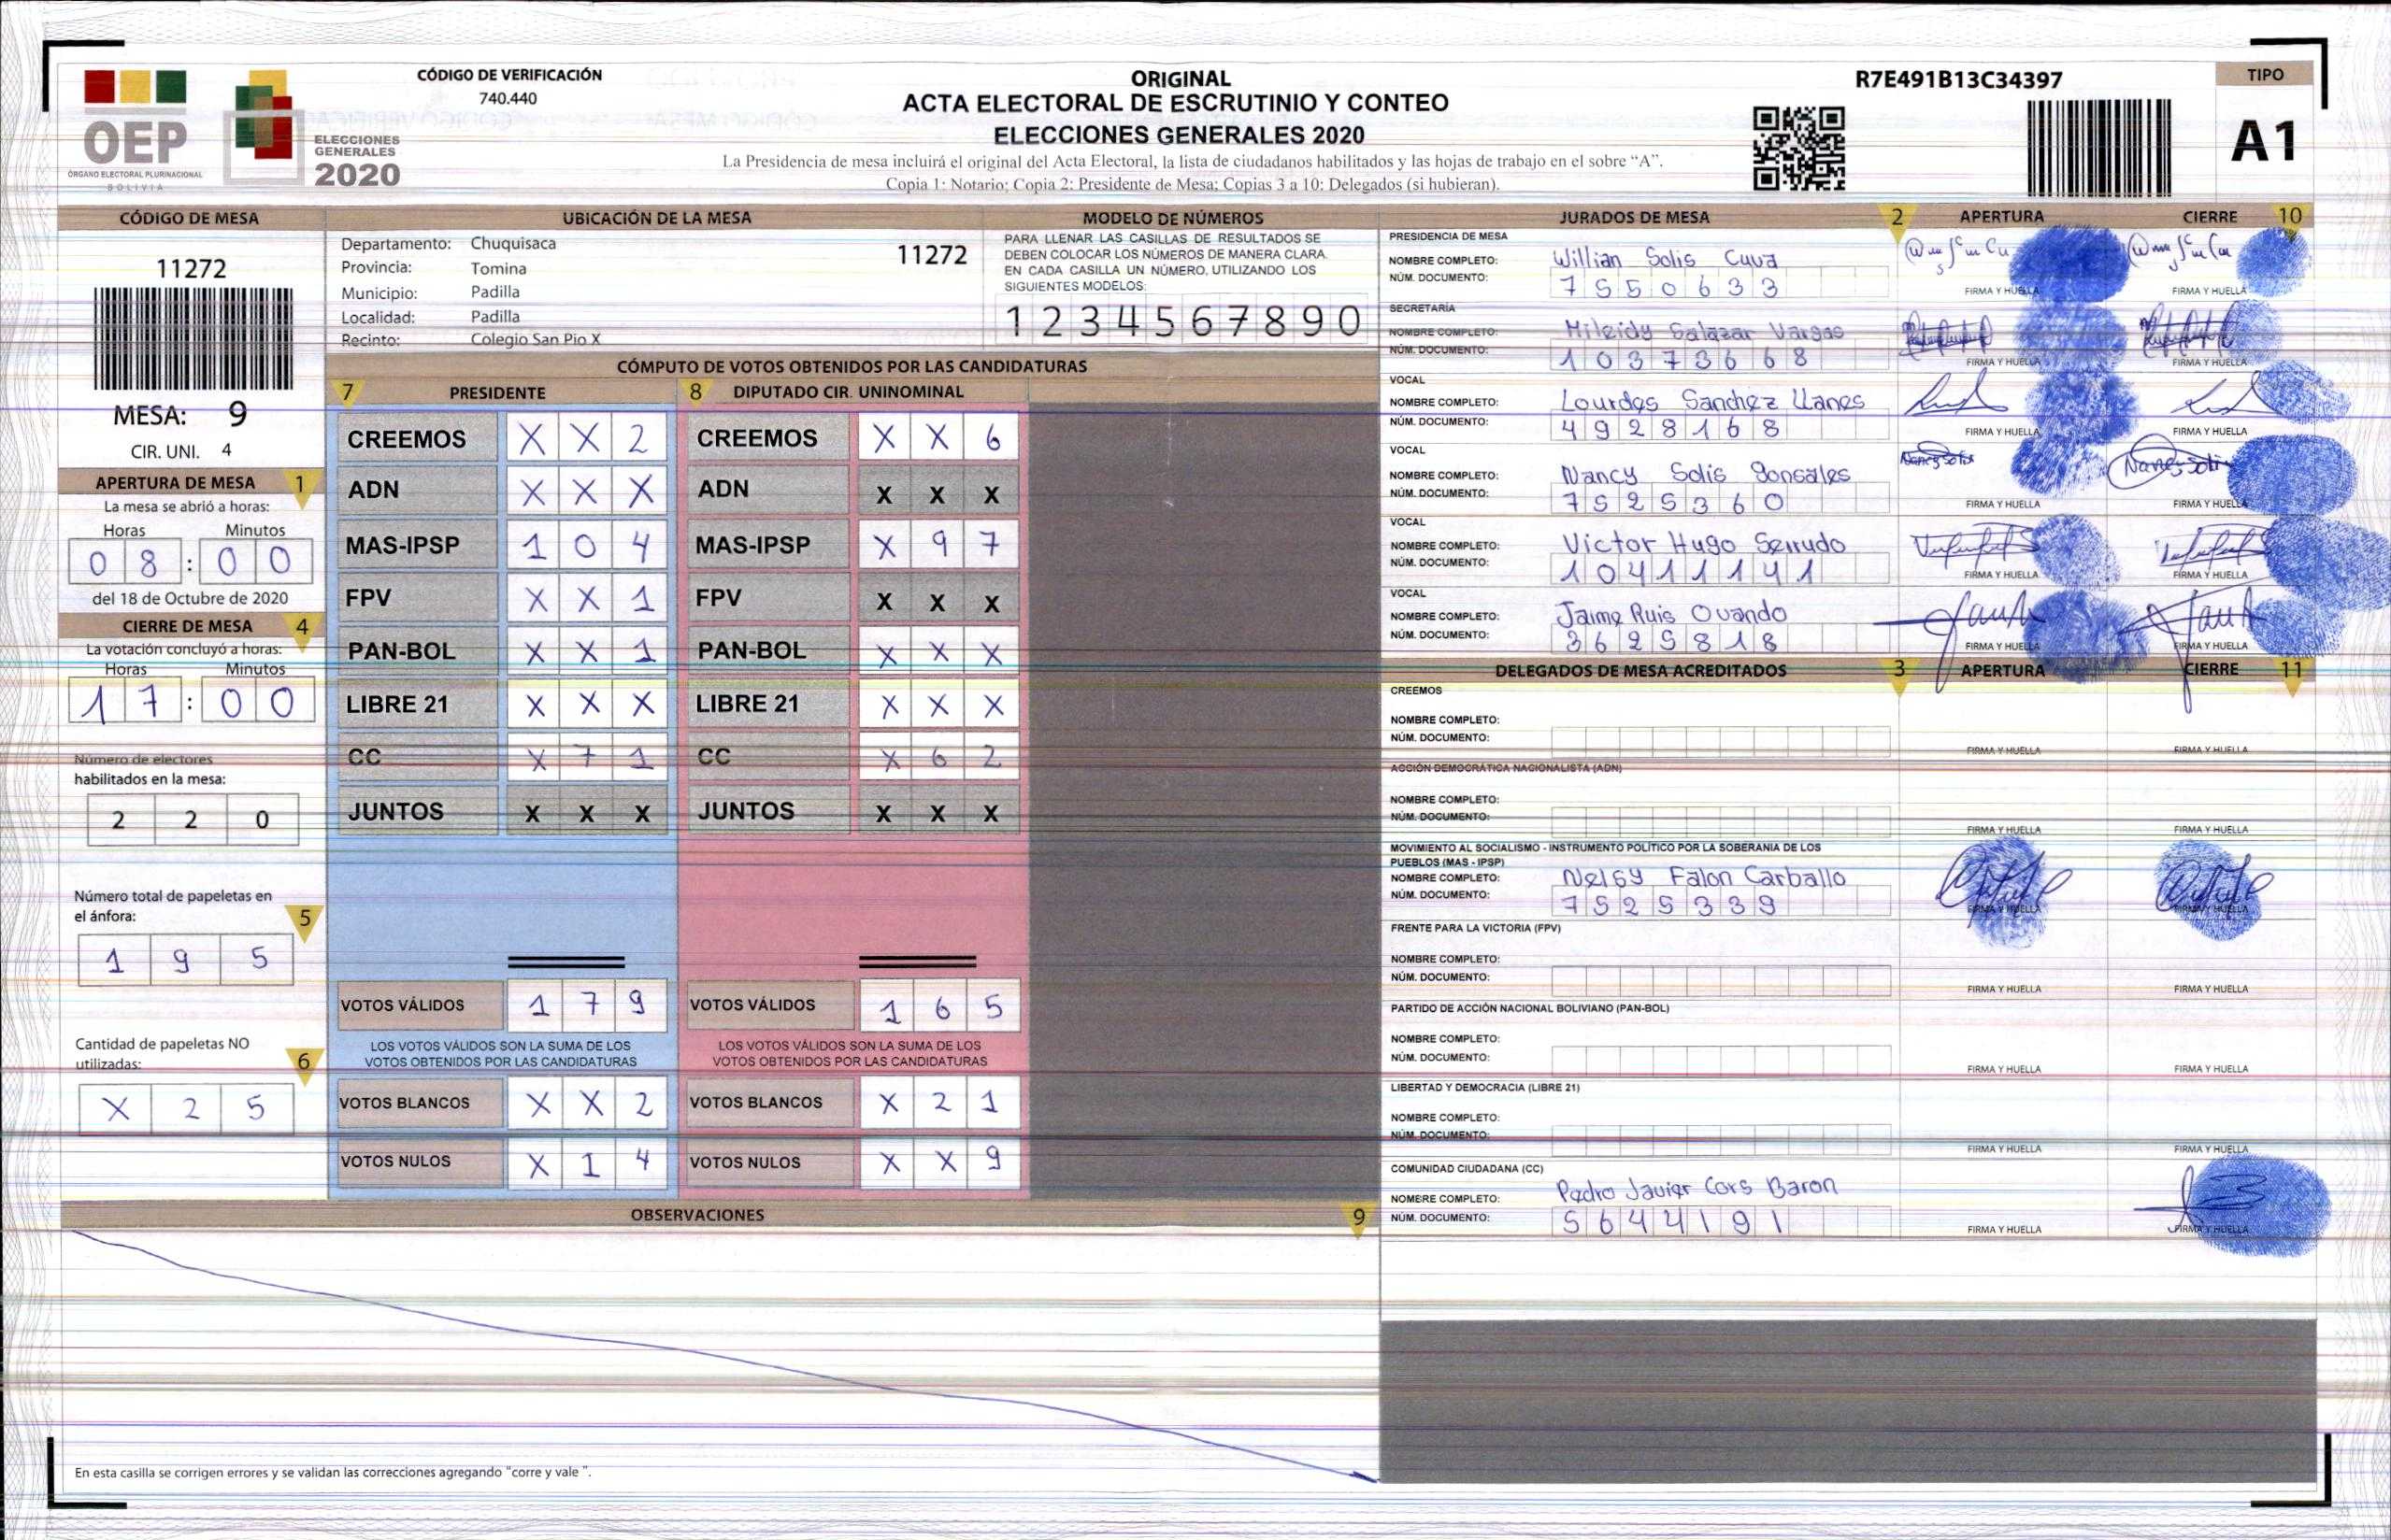 OEP
ÓRGANO ELECTORAL PLURINACIONAL
BOLIVIA
ELECCIONES
GENERALES
2020
CÓDIGO DE VERIFICACIÓN
740.440
ORIGINAL
ACTA ELECTORAL DE ESCRUTINIO Y CONTEO
ELECCIONES GENERALES 2020
La Presidencia de mesa incluirá el original del Acta Electoral, la lista de ciudadanos habilitados y las hojas de trabajo en el sobre “A”.
Copia 1: Notario; Copia 2: Presidente de Mesa; Copias 3 a 10: Delegados (si hubieran).
R7E491B13C34397
TIPO
A1
CÓDIGO DE MESA
11272
MESA: 9
CIR. UNI. 4
APERTURA DE MESA 1
La mesa se abrió a horas:
Horas Minutos
0 8 : 0 0
del 18 de Octubre de 2020
CIERRE DE MESA 4
La votación concluyó a horas:
Horas Minutos
1 7 : 0 0
Número de electores
habilitados en la mesa:
2 2 0
Número total de papeletas en
el ánfora: 5
1 9 5
Cantidad de papeletas NO
utilizadas: 6
X 2 5
UBICACIÓN DE LA MESA
Departamento: Chuquisaca 11272
Provincia: Tomina
Municipio: Padilla
Localidad: Padilla
Recinto: Colegio San Pio X
MODELO DE NÚMEROS
PARA LLENAR LAS CASILLAS DE RESULTADOS SE
DEBEN COLOCAR LOS NÚMEROS DE MANERA CLARA.
EN CADA CASILLA UN NÚMERO, UTILIZANDO LOS
SIGUIENTES MODELOS:
1 2 3 4 5 6 7 8 9 0
CÓMPUTO DE VOTOS OBTENIDOS POR LAS CANDIDATURAS
7 PRESIDENTE 8 DIPUTADO CIR. UNINOMINAL
CREEMOS X X 2 CREEMOS X X 6
ADN X X X ADN X X X
MAS-IPSP 1 0 4 MAS-IPSP X 9 7
FPV X X 1 FPV X X X
PAN-BOL X X 1 PAN-BOL X X X
LIBRE 21 X X X LIBRE 21 X X X
CC X 7 1 CC X 6 2
JUNTOS X X X JUNTOS X X X
VOTOS VÁLIDOS 1 7 9 VOTOS VÁLIDOS 1 6 5
LOS VOTOS VÁLIDOS SON LA SUMA DE LOS LOS VOTOS VÁLIDOS SON LA SUMA DE LOS
VOTOS OBTENIDOS POR LAS CANDIDATURAS VOTOS OBTENIDOS POR LAS CANDIDATURAS
VOTOS BLANCOS X X 2 VOTOS BLANCOS X 2 1
VOTOS NULOS X 1 4 VOTOS NULOS X X 9
OBSERVACIONES 9
En esta casilla se corrigen errores y se validan las correcciones agregando “corre y vale ”.
JURADOS DE MESA 2 APERTURA CIERRE 10
PRESIDENCIA DE MESA
NOMBRE COMPLETO: Willian Solis Cuva
NÚM. DOCUMENTO: 7 5 5 0 6 3 3
FIRMA Y HUELLA FIRMA Y HUELLA
SECRETARÍA
NOMBRE COMPLETO: Mileidy Salazar Vargas
NÚM. DOCUMENTO: 1 0 3 7 3 6 6 8
FIRMA Y HUELLA FIRMA Y HUELLA
VOCAL
NOMBRE COMPLETO: Lourdes Sanchez Llanes
NÚM. DOCUMENTO: 4 9 2 8 1 6 8
FIRMA Y HUELLA FIRMA Y HUELLA
VOCAL
NOMBRE COMPLETO: Nancy Solis Gonsales
NÚM. DOCUMENTO: 7 5 2 5 3 6 0
FIRMA Y HUELLA FIRMA Y HUELLA
VOCAL
NOMBRE COMPLETO: Victor Hugo Serrudo
NÚM. DOCUMENTO: 1 0 4 1 1 1 4 1
FIRMA Y HUELLA FIRMA Y HUELLA
VOCAL
NOMBRE COMPLETO: Jaime Ruis Ovando
NÚM. DOCUMENTO: 3 6 2 5 8 1 8
FIRMA Y HUELLA FIRMA Y HUELLA
DELEGADOS DE MESA ACREDITADOS 3 APERTURA CIERRE 11
CREEMOS
NOMBRE COMPLETO:
NÚM. DOCUMENTO:
FIRMA Y HUELLA FIRMA Y HUELLA
ACCIÓN DEMOCRÁTICA NACIONALISTA (ADN)
NOMBRE COMPLETO:
NÚM. DOCUMENTO:
FIRMA Y HUELLA FIRMA Y HUELLA
MOVIMIENTO AL SOCIALISMO - INSTRUMENTO POLÍTICO POR LA SOBERANIA DE LOS
PUEBLOS (MAS - IPSP)
NOMBRE COMPLETO: Nelsy Falon Carballo
NÚM. DOCUMENTO: 7 5 2 5 3 3 9
FIRMA Y HUELLA FIRMA Y HUELLA
FRENTE PARA LA VICTORIA (FPV)
NOMBRE COMPLETO:
NÚM. DOCUMENTO:
FIRMA Y HUELLA FIRMA Y HUELLA
PARTIDO DE ACCIÓN NACIONAL BOLIVIANO (PAN-BOL)
NOMBRE COMPLETO:
NÚM. DOCUMENTO:
FIRMA Y HUELLA FIRMA Y HUELLA
LIBERTAD Y DEMOCRACIA (LIBRE 21)
NOMBRE COMPLETO:
NÚM. DOCUMENTO:
FIRMA Y HUELLA FIRMA Y HUELLA
COMUNIDAD CIUDADANA (CC)
NOMBRE COMPLETO: Pedro Javier Cors Baron
NÚM. DOCUMENTO: 5 6 4 4 1 9 1
FIRMA Y HUELLA FIRMA Y HUELLA